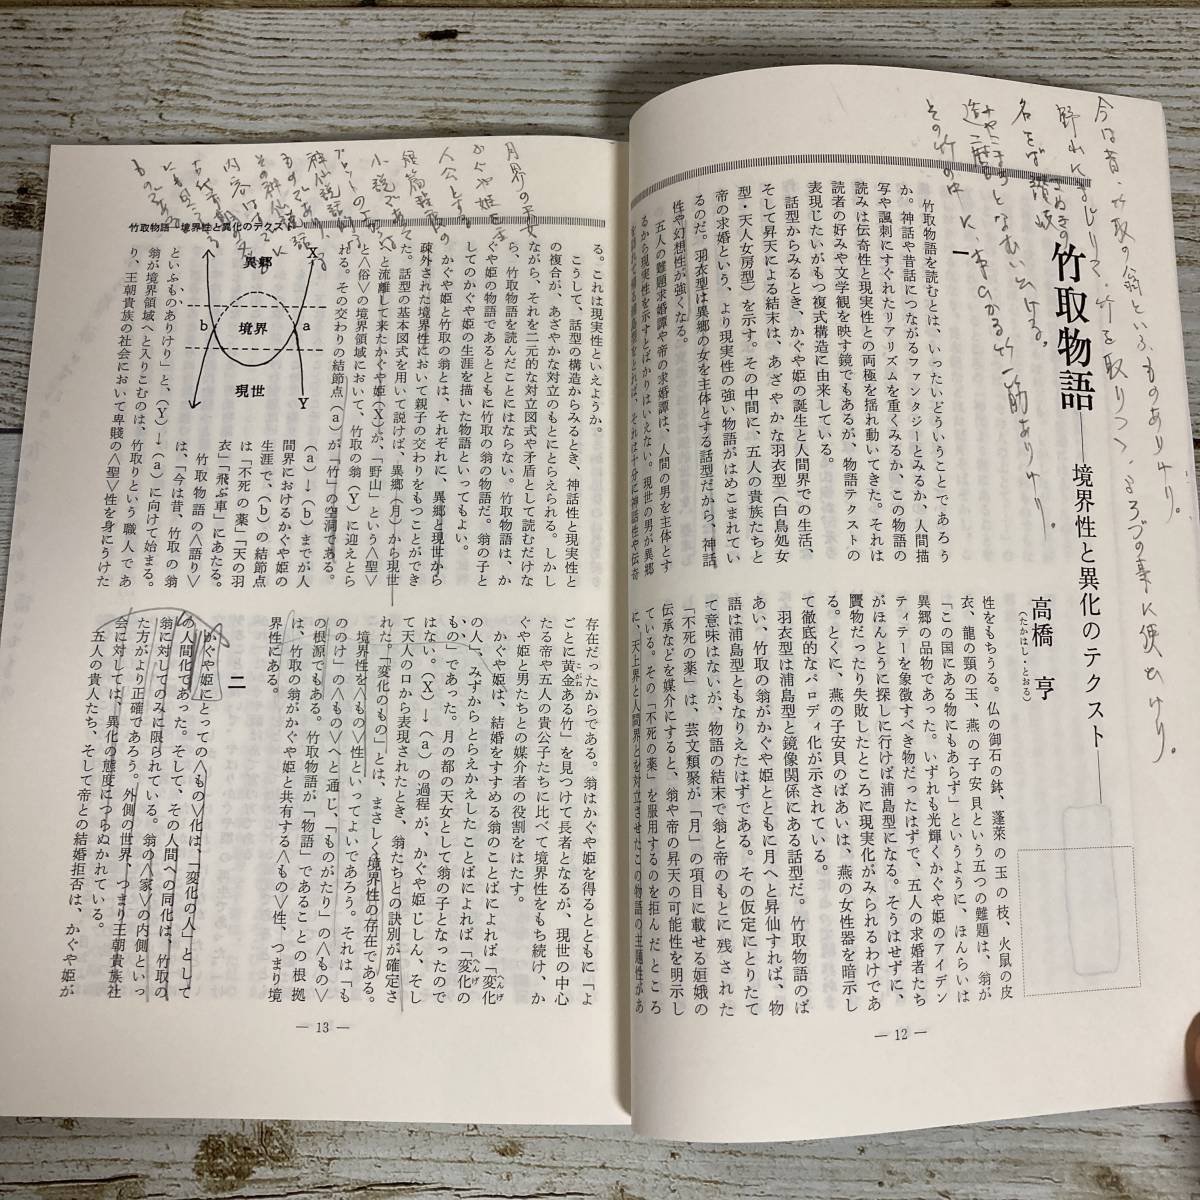 今は昔、竹取の翁といふものありけり。
野山にまじりて、竹を取りつゝ、よろづの事に使ひけり。
名をば讃岐
さぬきの
造
みやこまろとなむいひける。
その竹の中に、本光る竹一筋ありけり。
竹取物語――境界性と異化のテクスト――
高橋 亨
（たかはし・とおる）
一
竹取物語を読むとは、いったいどういうことであろう
か。神話や昔話につながるファンタジーとみるか、人間描
写や諷刺にすぐれたリアリズムを重くみるか、この物語の
読みは伝奇性と現実性との両極を揺れ動いてきた。それは
読者の好みや文学観を映す鏡でもあるが、物語テクストの
表現じたいがもつ複式構造に由来している。
話型からみるとき、かぐや姫の誕生と人間界での生活、
そして昇天による結末は、あざやかな羽衣型（白鳥処女
型・天人女房型）を示す。その中間に、五人の貴族たちと
帝の求婚という、より現実性の強い物語がはめこまれてい
るのだ。羽衣型は異郷の女を主体とする話型だから、神話
性や幻想性が強くなる。
五人の難題求婚譚や帝の求婚譚は、人間の男を主体とす
るから現実性を示すとばかりはいえない。現世の男が異郷
性をもちうる。仏の御石の鉢、蓬萊の玉の枝、火鼠の皮
衣、龍の頸の玉、燕の子安貝という五つの難題は、翁が
「この国にある物にもあらず」というように、ほんらいは
異郷の品物であった。いずれも光輝くかぐや姫のアイデン
ティティーを象徴すべき物だったはずで、五人の求婚者たち
がほんとうに探しに行けば浦島型になる。そうはせずに、
贋物だったり失敗したところに現実化がみられるわけであ
る。とくに、燕の子安貝のばあいは、燕の女性器を暗示し
て徹底的なパロディ化が示されている。
羽衣型は浦島型と鏡像関係にある話型だ。竹取物語のば
あい、竹取の翁がかぐや姫とともに月へと昇仙すれば、物
語は浦島型ともなりえたはずである。その仮定にとりたて
て意味はないが、物語の結末で翁と帝のもとに残された
「不死の薬」は、芸文類聚が「月」の項目に載せる姮娥の
伝承などを媒介にすると、翁や帝の昇天の可能性を明示し
ている。その「不死の薬」を服用するのを拒んだところ
に、天上界と人間界とを対立させたこの物語の主題性があ
― 12 ―
月界の天女
かぐや姫を主
人公とする
竹取物語―境界性と異化のテクスト―
る。これは現実性といえようか。
こうして、話型の構造からみるとき、神話性と現実性と
の複合が、あざやかな対立のもとにとらえられる。しかし
ながら、それを二元的な対立図式や矛盾として読むだけな
ら、竹取物語を読んだことにはならない。竹取物語は、か
ぐや姫の物語であるとともに竹取の翁の物語だ。翁の子と
してのかぐや姫の生涯を描いた物語といってもよい。
かぐや姫と竹取の翁とは、それぞれに、異郷と現世から
疎外された境界性において親子の交わりをもつことができ
た。話型の基本図式を用いて説けば、異郷（月）から現世
へと流離して来たかぐや姫（X）が、「野山」という〈聖〉
と〈俗〉の境界領域において、竹取の翁（Y）に迎えとら
れる。その交わりの結節点（a）が「竹」の空洞である。
（a）→（b）までが人
間界におけるかぐや姫の
生涯で、（b）の結節点
は「不死の薬」「天の羽
衣」「飛ぶ車」にあたる。
竹取物語の〈語り〉
は、「今は昔、竹取の翁
といふものありけり」と、（Y）→（a）に向けて始まる。
翁が境界領域へと入りこむのは、竹取りという職人であ
り、王朝貴族の社会において卑賤の〈聖〉性を身にうけた
異郷
X
境界
a
b
現世
Y
存在だったからである。翁はかぐや姫を得るとともに「よ
ごとに黄金ある竹」を見つけて長者となるが、現世の中心
たる帝や五人の貴公子たちに比べて境界性をもち続け、か
ぐや姫と男たちとの媒介者の役割をはたす。
かぐや姫は、結婚をすすめる翁のことばによれば「変化
の人」、みずからとらえかえしたことばによれば「変化の
もの」であった。月の都の天女として翁の子となったので
はない。（X）→（a）の過程が、かぐや姫じしん、そし
て天人の口から表現されたとき、翁たちとの訣別が確定さ
れた。「変化のもの」とは、まさしく境界性の存在である。
境界性を〈もの〉性といってよいであろう。それは「も
ののけ」の〈もの〉へと通じ、「ものがたり」の〈もの〉
の根源でもある。竹取物語が「物語」であることの根拠
は、竹取の翁がかぐや姫と共有する〈もの〉性、つまり境
界性にある。
二
かぐや姫にとっての〈もの〉化は、「変化の人」として
の人間化であった。そして、その人間への同化は、竹取の
翁に対してのみに限られている。翁の〈家〉の内側といっ
た方がより正確であろう。外側の世界、つまり王朝貴族社
会に対しては、異化の態度につらぬかれている。
五人の貴人たち、そして帝との結婚拒否は、かぐや姫が
― 13 ―